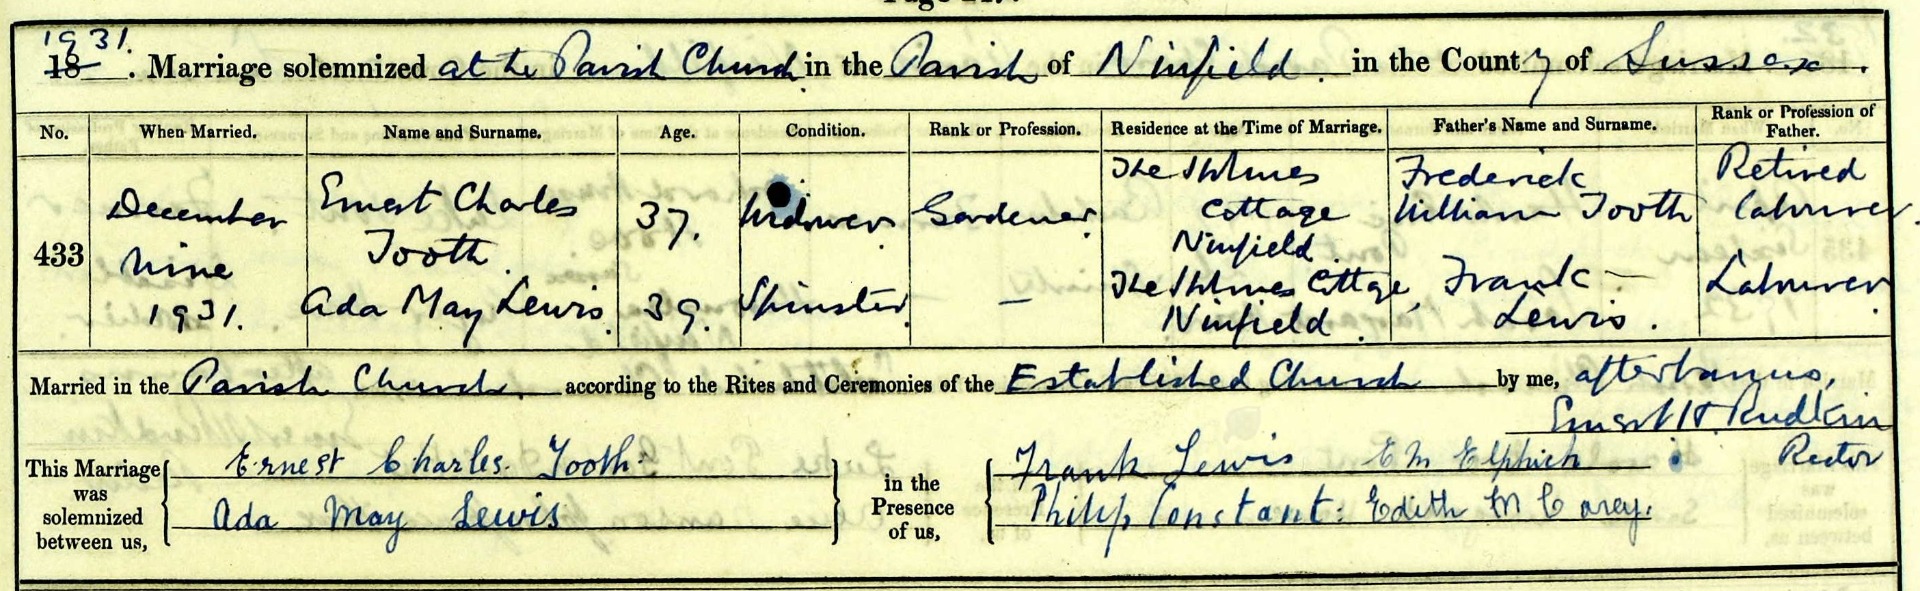 1931.
18 . Marriage solemnized at the Parish Church in the Parish of Ninfield. in the County of Sussex.
No. When Married. Name and Surname. Age. Condition. Rank or Profession. Residence at the Time of Marriage. Father's Name and Surname. Rank or Profession of Father.
433 December Nine 1931. Ernest Charles Tooth. 37. Widower Gardener. The Holmes Cottage Ninfield. Frederick William Tooth Retired Labourer.
Ada May Lewis. 39. Spinster — The Holmes Cottage, Ninfield. Frank Lewis. Labourer.
Married in the Parish Church. according to the Rites and Ceremonies of the Established Church by me, after banns,
Ernest H. Rudkin
Rector
This Marriage was solemnized between us, { Ernest Charles. Tooth.
Ada May Lewis }
in the Presence of us, { Frank Lewis E M Elphick
Philip Constant: Edith M Carey.